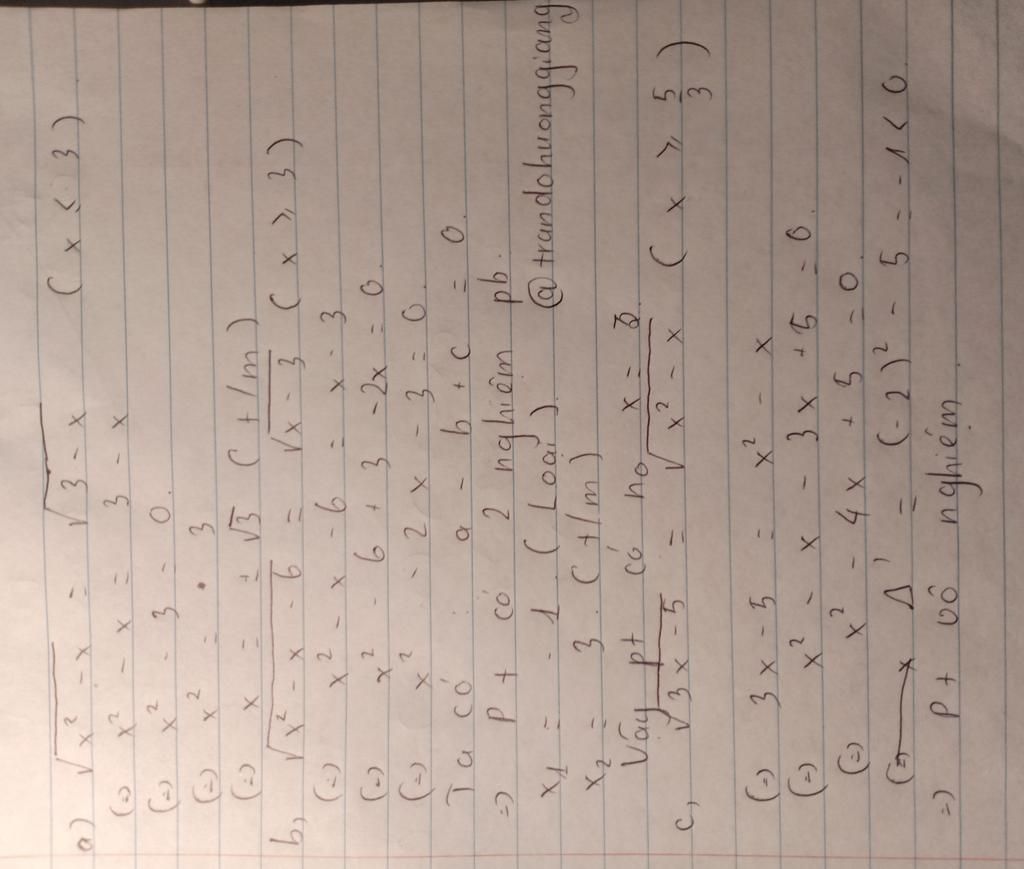 a) √(x² - x) = √(3 - x) (x ≤ 3)
(=) x² - x = 3 - x
(=) x² - 3 = 0.
(=) x² = 3
(=) x = ± √3 (t/m)
b, √(x² - x - 6) = √(x - 3) (x ≥ 3)
(=) x² - x - 6 = x - 3
(=) x² - 6 + 3 - 2x = 0.
(=) x² - 2x - 3 = 0.
Ta có : a - b + c = 0.
=) pt có 2 nghiệm pb.
x₁ = -1 (Loại) @trandohuonggiang
x₂ = 3 (t/m)
Vậy pt có no x = 3
c, √(3x - 5) = √(x² - x) (x ≥ 5/3)
(=) 3x - 5 = x² - x
(=) x² - x - 3x + 5 = 0.
(=) x² - 4x + 5 = 0.
(=) x Δ' = (-2)² - 5 = -1 < 0
=) pt vô nghiệm